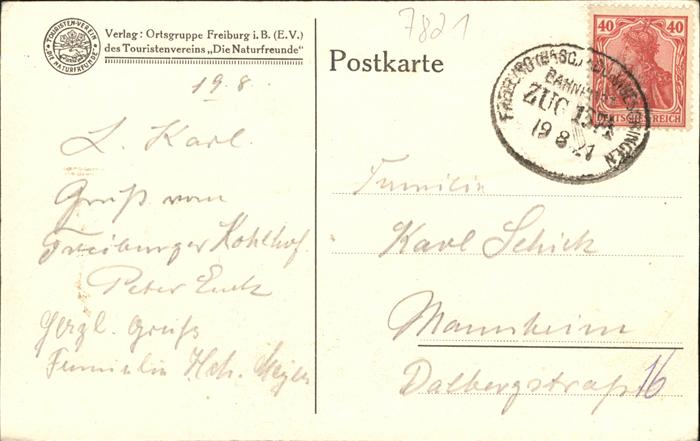 TOURISTEN-VEREIN
"DIE NATURFREUNDE"
Verlag: Ortsgruppe Freiburg i. B. (E.V.)
des Touristenvereins „Die Naturfreunde"
19.8.
L. Karl.
Gruß vom
Freiburger Kohlhof.
Peter
Herzl. Grüße
Familie Hch. Meyer
7821
Postkarte
40 40
DEUTSCHES REICH
BAHNPOST
ZUG
19 8 21
Familie
Karl Schick
Mannheim
Dalbergstraße 16